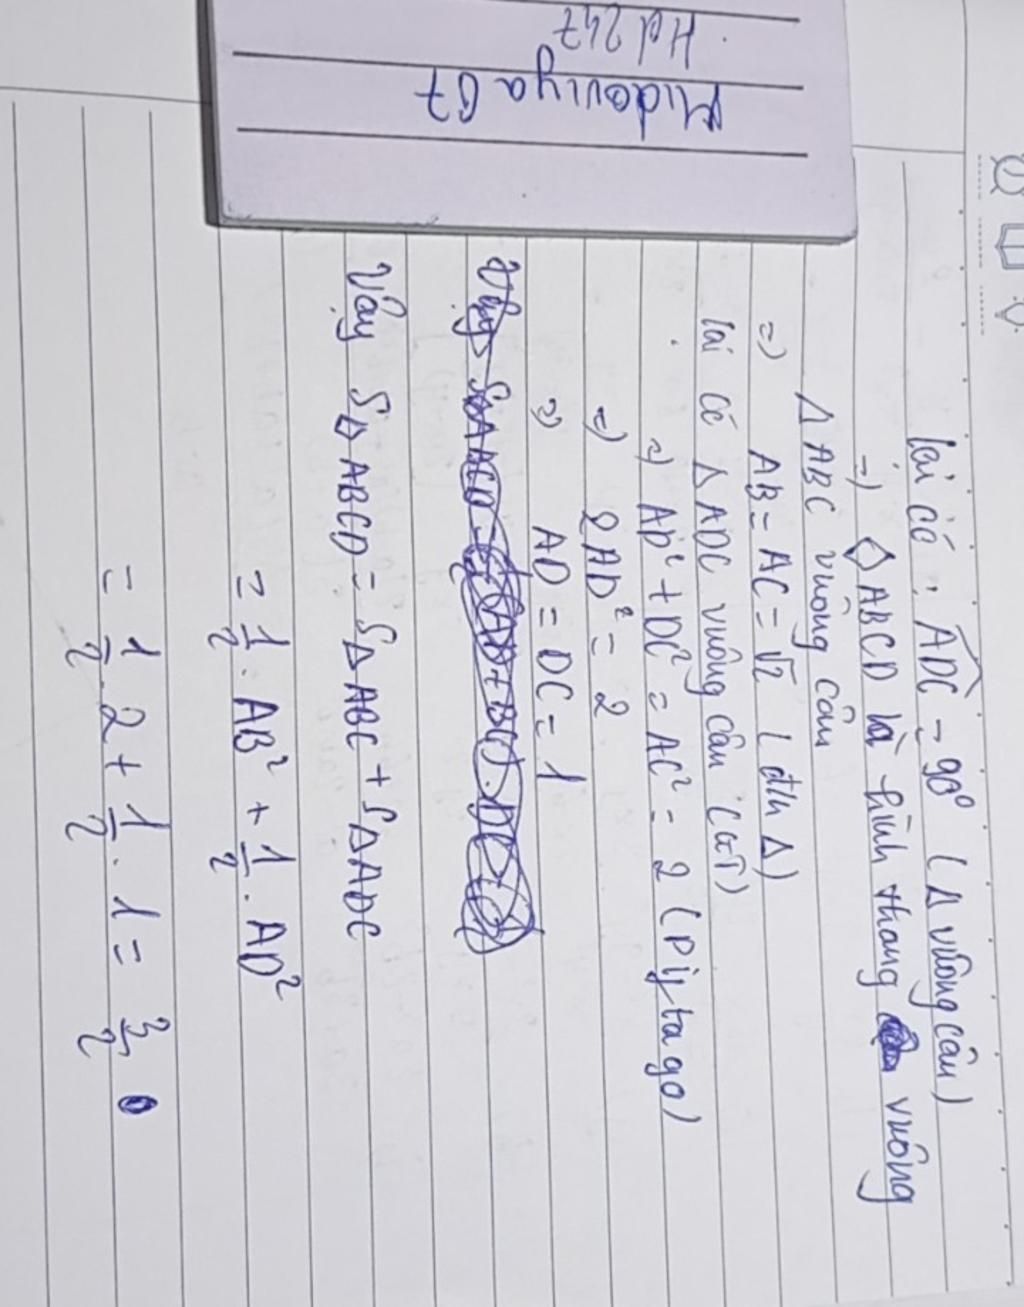 Midoriya 07
Hd 247
lại có: ADC = 90° (Δ vuông cân)
=) ◇ABCD là hình thang vuông
Δ ABC vuông cân
=) AB = AC = √2 (đ/n Δ)
lại có Δ ADC vuông cân (GT)
=) AD² + DC² = AC² = 2 (Pytago)
=) 2AD² = 2
=) AD = DC = 1
Vậy S◇ABCD = SΔABC + SΔADC
= 1/2 . AB² + 1/2 . AD²
= 1/2 . 2 + 1/2 . 1 = 3/2